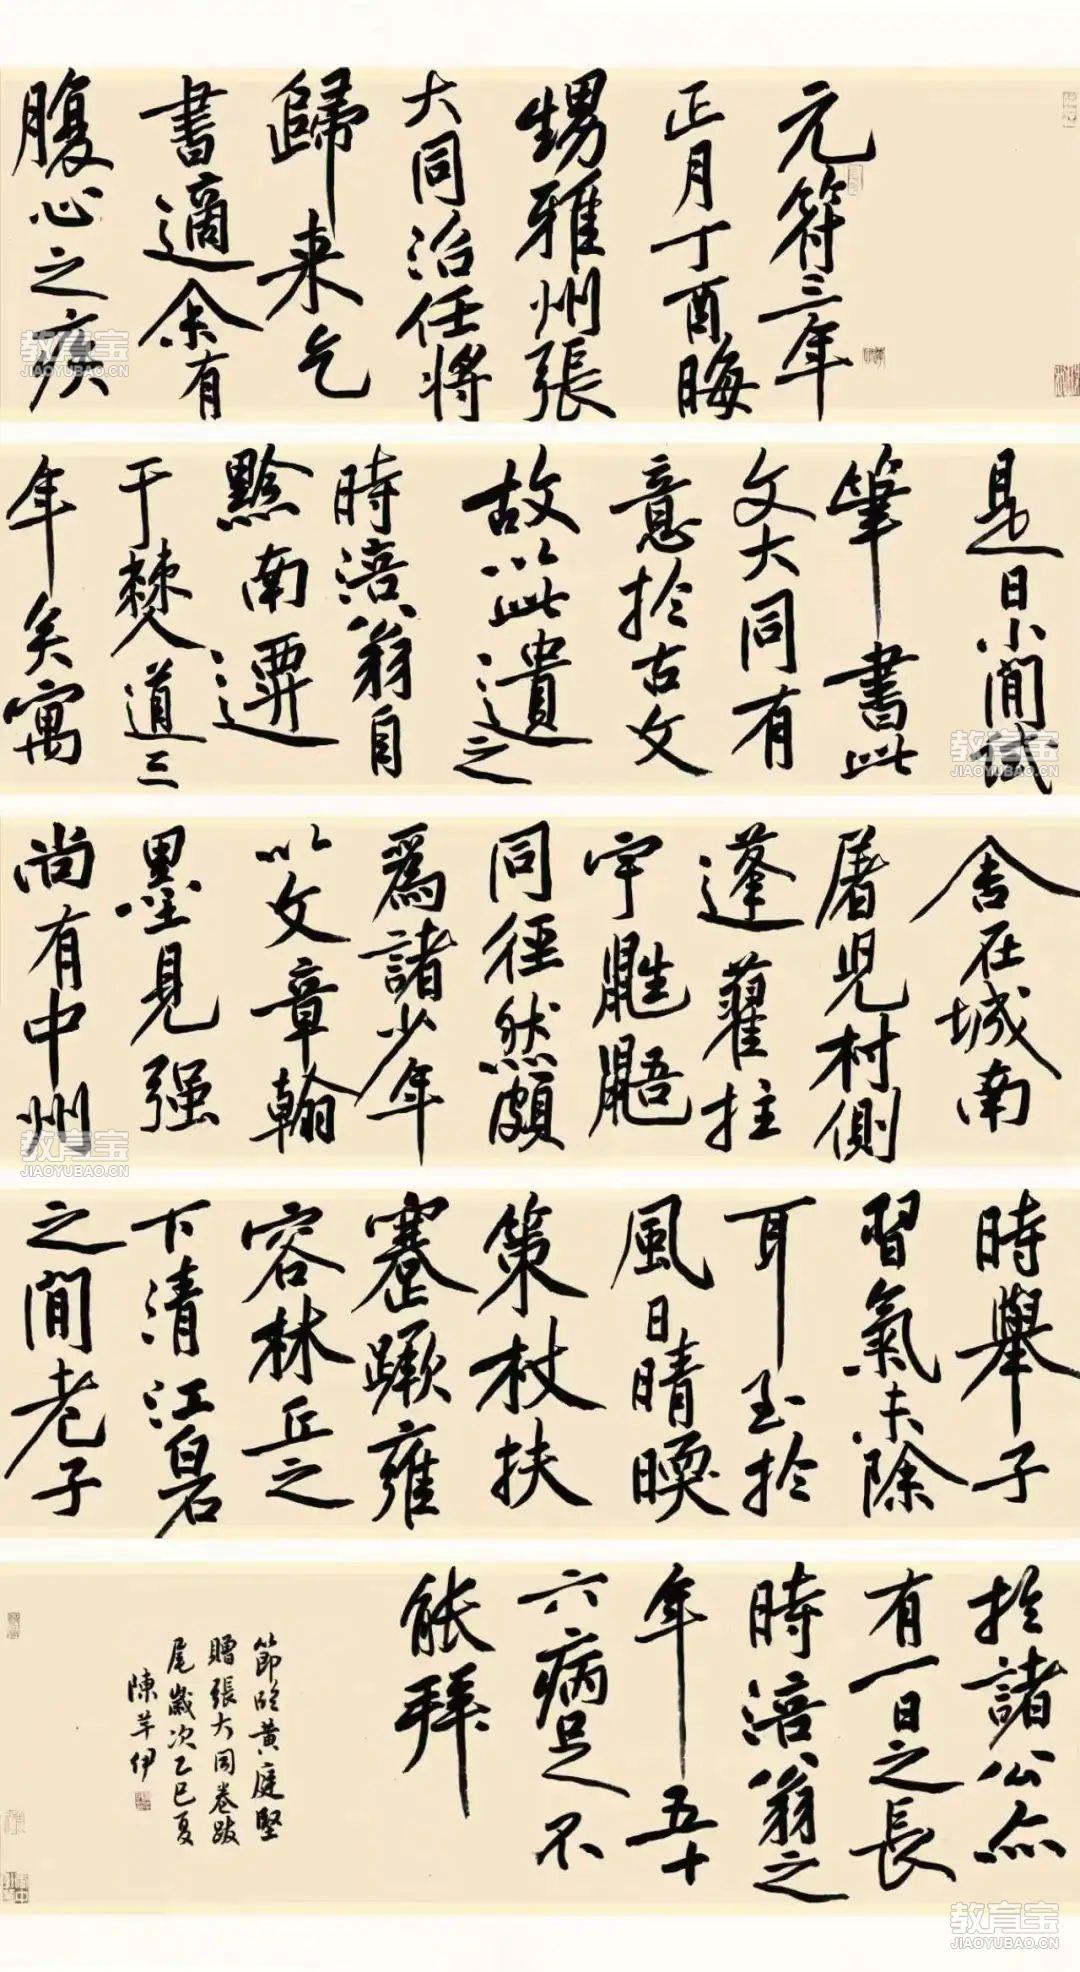 元符三年
正月丁酉晦
甥雅州張
大同治任將
歸来乞
書適余有
腹心之疾
是日小閒試
筆書此
文大同有
意扵古文
故以此遺之
時涪翁自
黔南遷
于僰道三
年矣寓
舍在城南
屠児村側
蓬藋拄
宇鼪鼯
同徑然頗
為諸少年
以文章翰
墨見强
尚有中州
時舉子
習氣未除
耳至扵
風日晴暖
策杖扶
蹇蹶雍
容林丘之
下清江白石
之間老子
扵諸公亦
有一日之長
時涪翁之
年五十
六病足不
能拜
節臨黃庭堅
贈張大同卷跋
尾歲次乙巳夏
陳芊伊
教育宝
JIAOYUBAO.CN
教育宝
JIAOYUBAO.CN
教育宝
JIAOYUBAO.CN
教育宝
JIAOYUBAO.CN